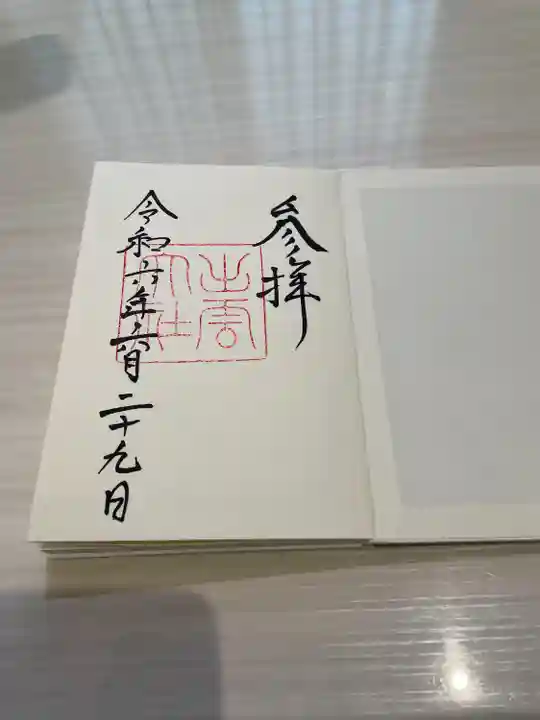 参拝
出雲
大社
令和六年六月二十九日